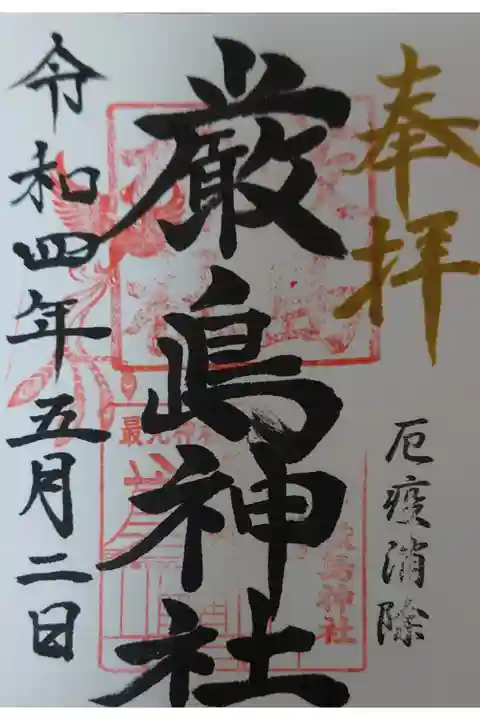 奉拝
厄疫消除
厳島神社
最元神
島神社
令和四年五月二日